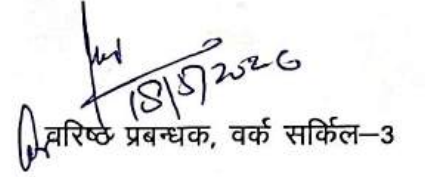 18/5/2026
वरिष्ठ प्रबन्धक, वर्क सर्किल–3